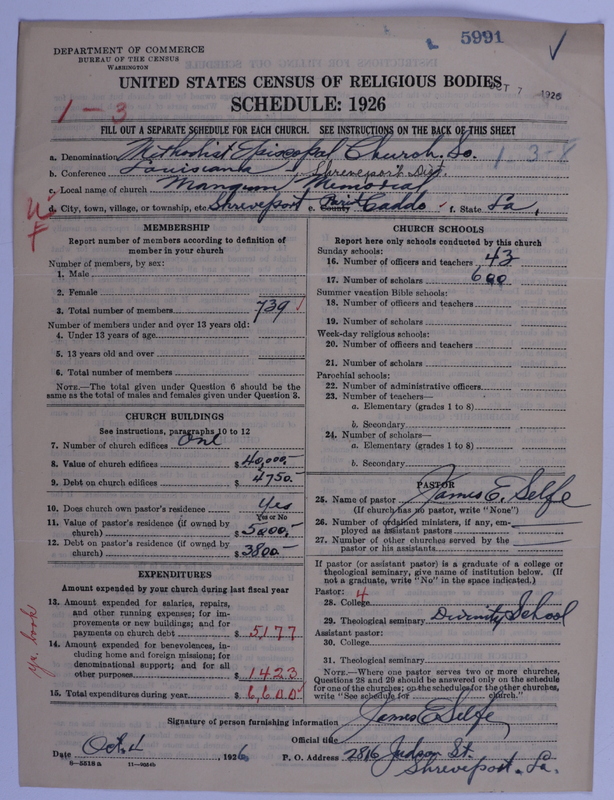 5991
DEPARTMENT OF COMMERCE
BUREAU OF THE CENSUS
WASHINGTON
UNITED STATES CENSUS OF RELIGIOUS BODIES
OCT 7 1926
SCHEDULE: 1926
1-3
FILL OUT A SEPARATE SCHEDULE FOR EACH CHURCH. SEE INSTRUCTIONS ON THE BACK OF THIS SHEET
a. Denomination Methodist Episcopal Church, So.
1-3-8
b. Conference Louisiana Shreveport Dist.
c. Local name of church Mangum Memorial
d. City, town, village, or township, etc. Shreveport e. County Parish Caddo f. State La.
MEMBERSHIP
Report number of members according to definition of
member in your church
Number of members, by sex:
1. Male
2. Female
3. Total number of members 739
Number of members under and over 13 years old:
4. Under 13 years of age
5. 13 years old and over
6. Total number of members
NOTE.—The total given under Question 6 should be the
same as the total of males and females given under Question 3.
CHURCH BUILDINGS
See instructions, paragraphs 10 to 12
7. Number of church edifices One
8. Value of church edifices $ 40,000.-
9. Debt on church edifices $ 4750.-
10. Does church own pastor's residence Yes
Yes or No
11. Value of pastor's residence (if owned by
church) $ 5000.-
12. Debt on pastor's residence (if owned by
church) $ 3800.-
EXPENDITURES
Amount expended by your church during last fiscal year
13. Amount expended for salaries, repairs,
and other running expenses; for im-
provements or new buildings; and for
payments on church debt $ 5177
14. Amount expended for benevolences, in-
cluding home and foreign missions; for
denominational support; and for all
other purposes $ 1423
15. Total expenditures during year $ 6,600
yr. book
CHURCH SCHOOLS
Report here only schools conducted by this church
Sunday schools:
16. Number of officers and teachers 43
17. Number of scholars 600
Summer vacation Bible schools:
18. Number of officers and teachers
19. Number of scholars
Week-day religious schools:
20. Number of officers and teachers
21. Number of scholars
Parochial schools:
22. Number of administrative officers
23. Number of teachers—
a. Elementary (grades 1 to 8)
b. Secondary
24. Number of scholars—
a. Elementary (grades 1 to 8)
b. Secondary
PASTOR
25. Name of pastor James E. Selfe
(If church has no pastor, write "None")
26. Number of ordained ministers, if any, em-
ployed as assistant pastors
27. Number of other churches served by the
pastor or his assistants
If pastor (or assistant pastor) is a graduate of a college or
theological seminary, give name of institution below. (If
not a graduate, write "No" in the space indicated.)
Pastor: 4
28. College
29. Theological seminary Divinity School
Assistant pastor:
30. College
31. Theological seminary
NOTE.—Where one pastor serves two or more churches,
Questions 28 and 29 should be answered only on the schedule
for one of the churches; on the schedules for the other churches,
write "See schedule for church."
Signature of person furnishing information James E Selfe
Official title
Date Oct. 1926 P. O. Address 2816 Judson St.
Shreveport. La.
8—5518 a